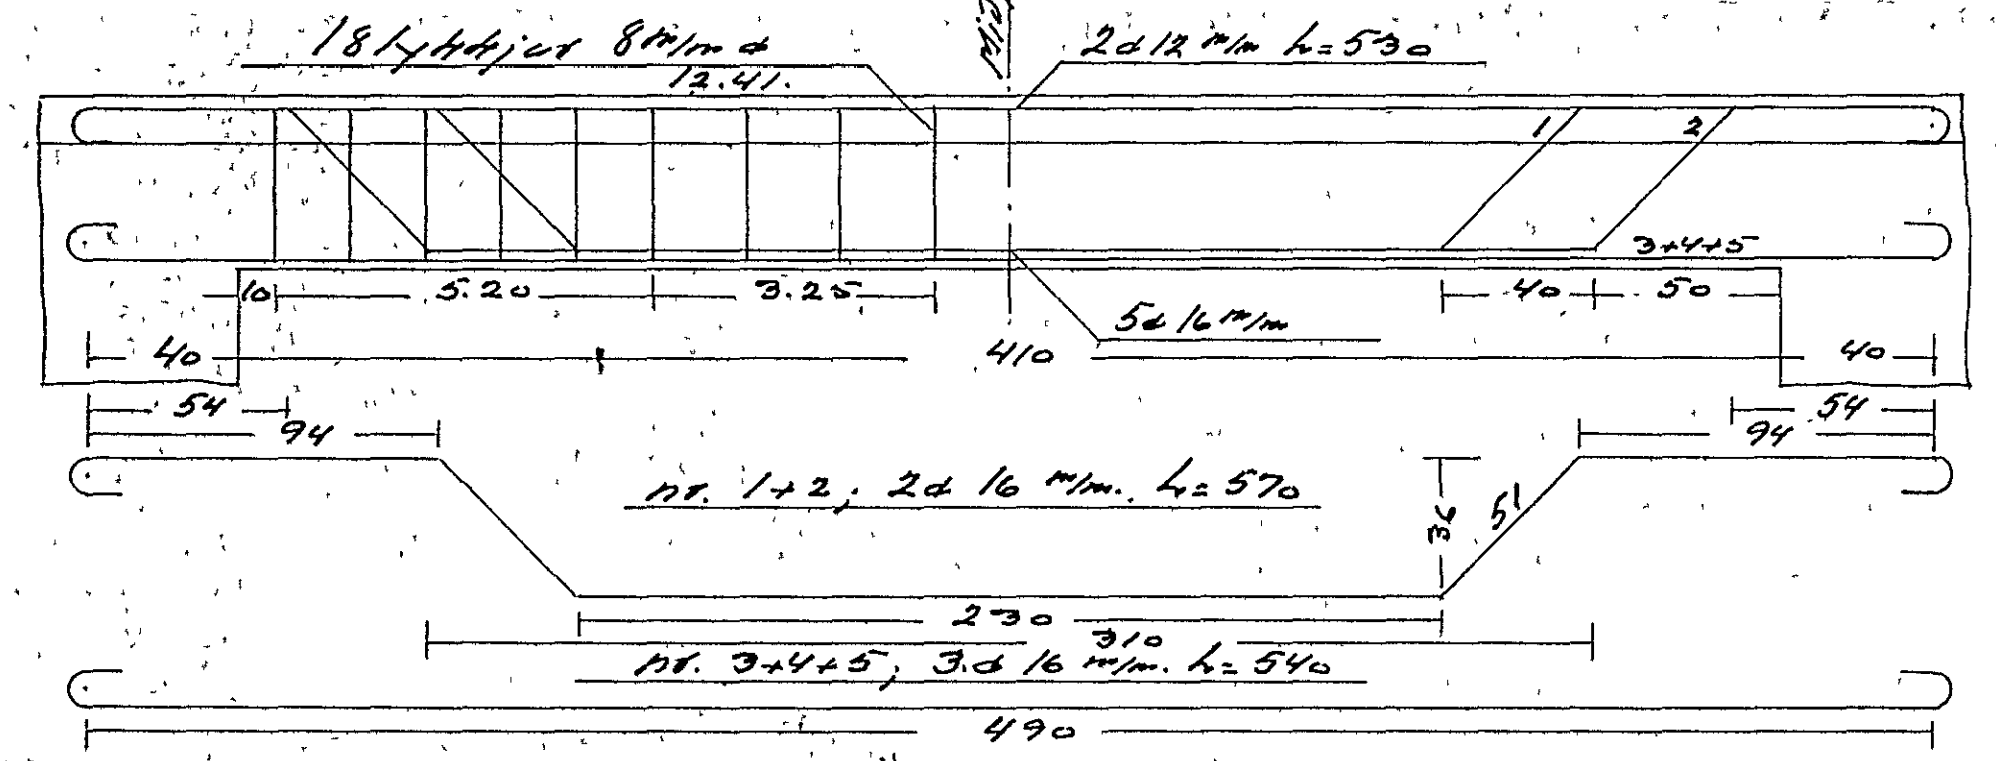 Mið
18 lykkjur 8 m/m d
12.41.
2d 12 m/m L=530
1 2
3+4+5
10 5.20 3.25 40 50
5d 16 m/m
40 410 40
54 54
94 94
nr. 1+2; 2d 16 m/m. L=570
36
51
230
310
nr. 3+4+5; 3.d 16 m/m. L=540
490